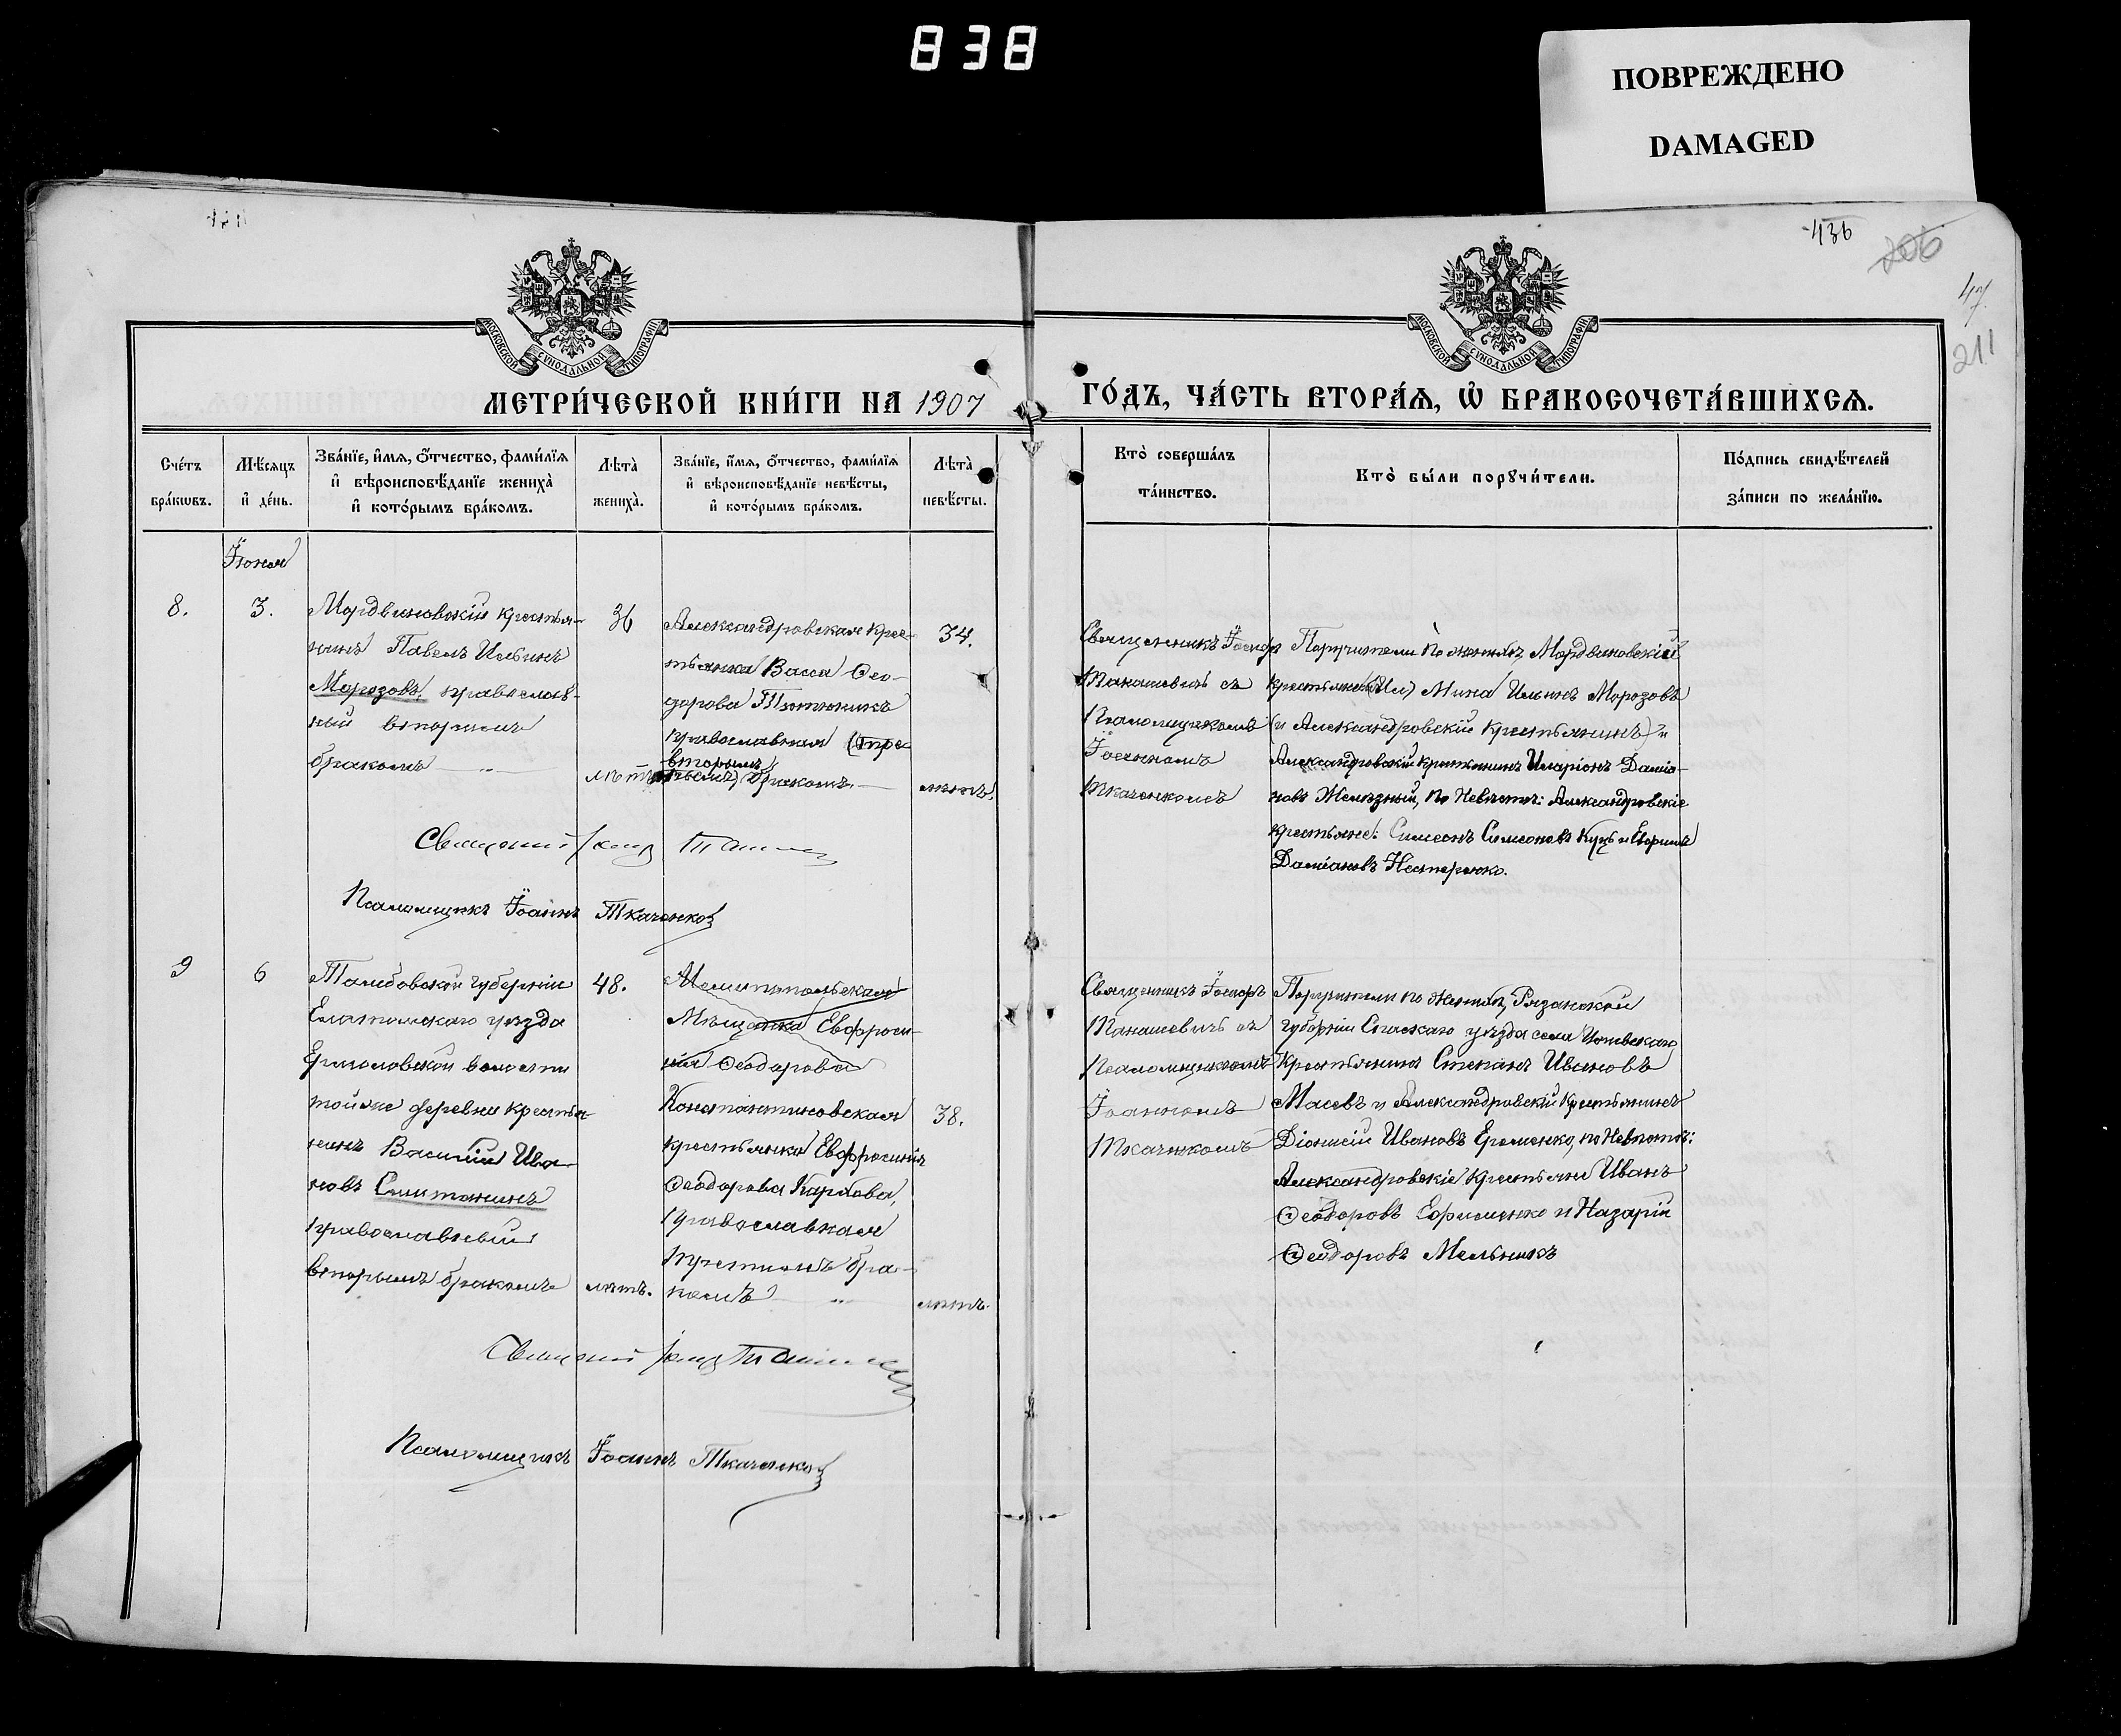 838
ПОВРЕЖДЕНО
DAMAGED
436
206
47.
211
МОСКОВСКОЙ СѴНОДАЛЬНОЙ ТИПОГРАФІИ
МОСКОВСКОЙ СѴНОДАЛЬНОЙ ТИПОГРАФІИ
МЕТРИ́ЧЕСКОЙ КНИ́ГИ НА 1907
ГО́ДЪ, ЧА́СТЬ ВТОРА́Я, Ѡ҆ БРАКОСОЧЕТА́ВШИХСЯ.
Сче́тъ
бра́кѡвъ.
Мѣ́сяцъ
и҆ де́нь.
Зва́нїе, и҆́мя, ѻ҆́тчество, фами́лїя
и҆ вѣроисповѣ́данїе жениха̀
и҆ кото́рымъ бра́комъ.
Лѣта̀
жениха̀.
Зва́нїе, и҆́мя, ѻ҆́тчество, фами́лїя
и҆ вѣроисповѣ́данїе невѣ́сты,
и҆ кото́рымъ бра́комъ.
Лѣта̀
невѣ́сты.
Кто̀ соверша́лъ
та́инство.
Кто̀ бы́ли порꙋчи́тели.
По́дпись свидѣ́телей
за́писи по жела́нїю.
Іюня
8.
3.
Мордвиновскій крестья-
нинъ Павелъ Ильинъ
Морозовъ, православ-
ный вторымъ
бракомъ
36
лѣтъ
Александровская крес-
тьянка Васса Ѳео-
дорова Тютюникъ
православная (тре-
вторымъ
тьимъ) бракомъ
34.
лѣтъ.
Священникъ Іосифъ
Танашевичъ съ
Псаломщикомъ
Іоанномъ
Ткаченкомъ
Поручители по женихѣ, Мордвиновскій
крестьянинъ Мина Ильинъ Морозовъ
(и Александровскій крестьянинъ) и
Александровскій крестьянинъ Иларіонъ Даміа-
новъ Желѣзный, по Невѣстѣ: Александровскіе
крестьяне: Симеонъ Симеоновъ Куць и
Даміановъ Нестеренко.
Псаломщикъ Іоаннъ Ткаченко
9
6
Тамбовской губерніи
Елатомскаго уѣзда
Ермоловской волости
той же деревни крестья-
нинъ Василій Ива-
новъ Силитонинъ
православный
вторымъ бракомъ
48.
лѣтъ.
Мелитопольская
Мѣщанка Евфроси-
нія Ѳеодорова
Константиновская
крестьянка Евфросинія
Ѳеодорова Карпова,
православная
третьимъ бра-
комъ
38.
лѣтъ.
Священникъ Іосифъ
Танашевичъ съ
Псаломщикомъ
Іоанномъ
Ткаченкомъ
Поручители по Женихѣ, Рязанской
губерніи Спасскаго уѣзда села
крестьянинъ Степанъ Ивановъ
Масевъ и Александровскій крестьянинъ
Діонисій Ивановъ Еременко, по Невѣстѣ:
Александровскіе крестьяне Иванъ
Ѳеодоровъ Ефименко и Назарій
Ѳеодоровъ Мельникъ
Псаломщикъ Іоаннъ Ткаченко